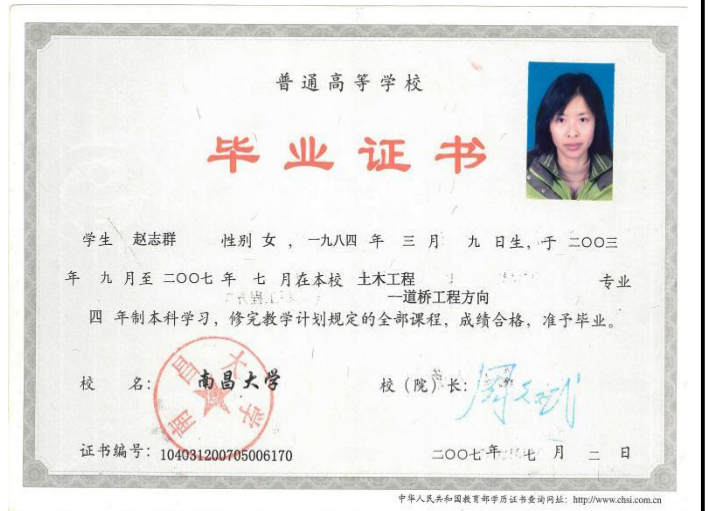 普通高等学校
毕业证书
学生 赵志群 性别 女 ，一九八四 年 三 月 九 日生，于 二〇〇三
年 九 月至 二〇〇七 年 七 月在本校 土木工程 专业
—道桥工程方向
四 年制本科学习，修完教学计划规定的全部课程，成绩合格，准予毕业。
校 名： 南昌大学 校（院）长：
南昌大学
证书编号：104031200705006170 二〇〇七 年 七 月 二 日
中华人民共和国教育部学历证书查询网址：http://www.chsi.com.cn